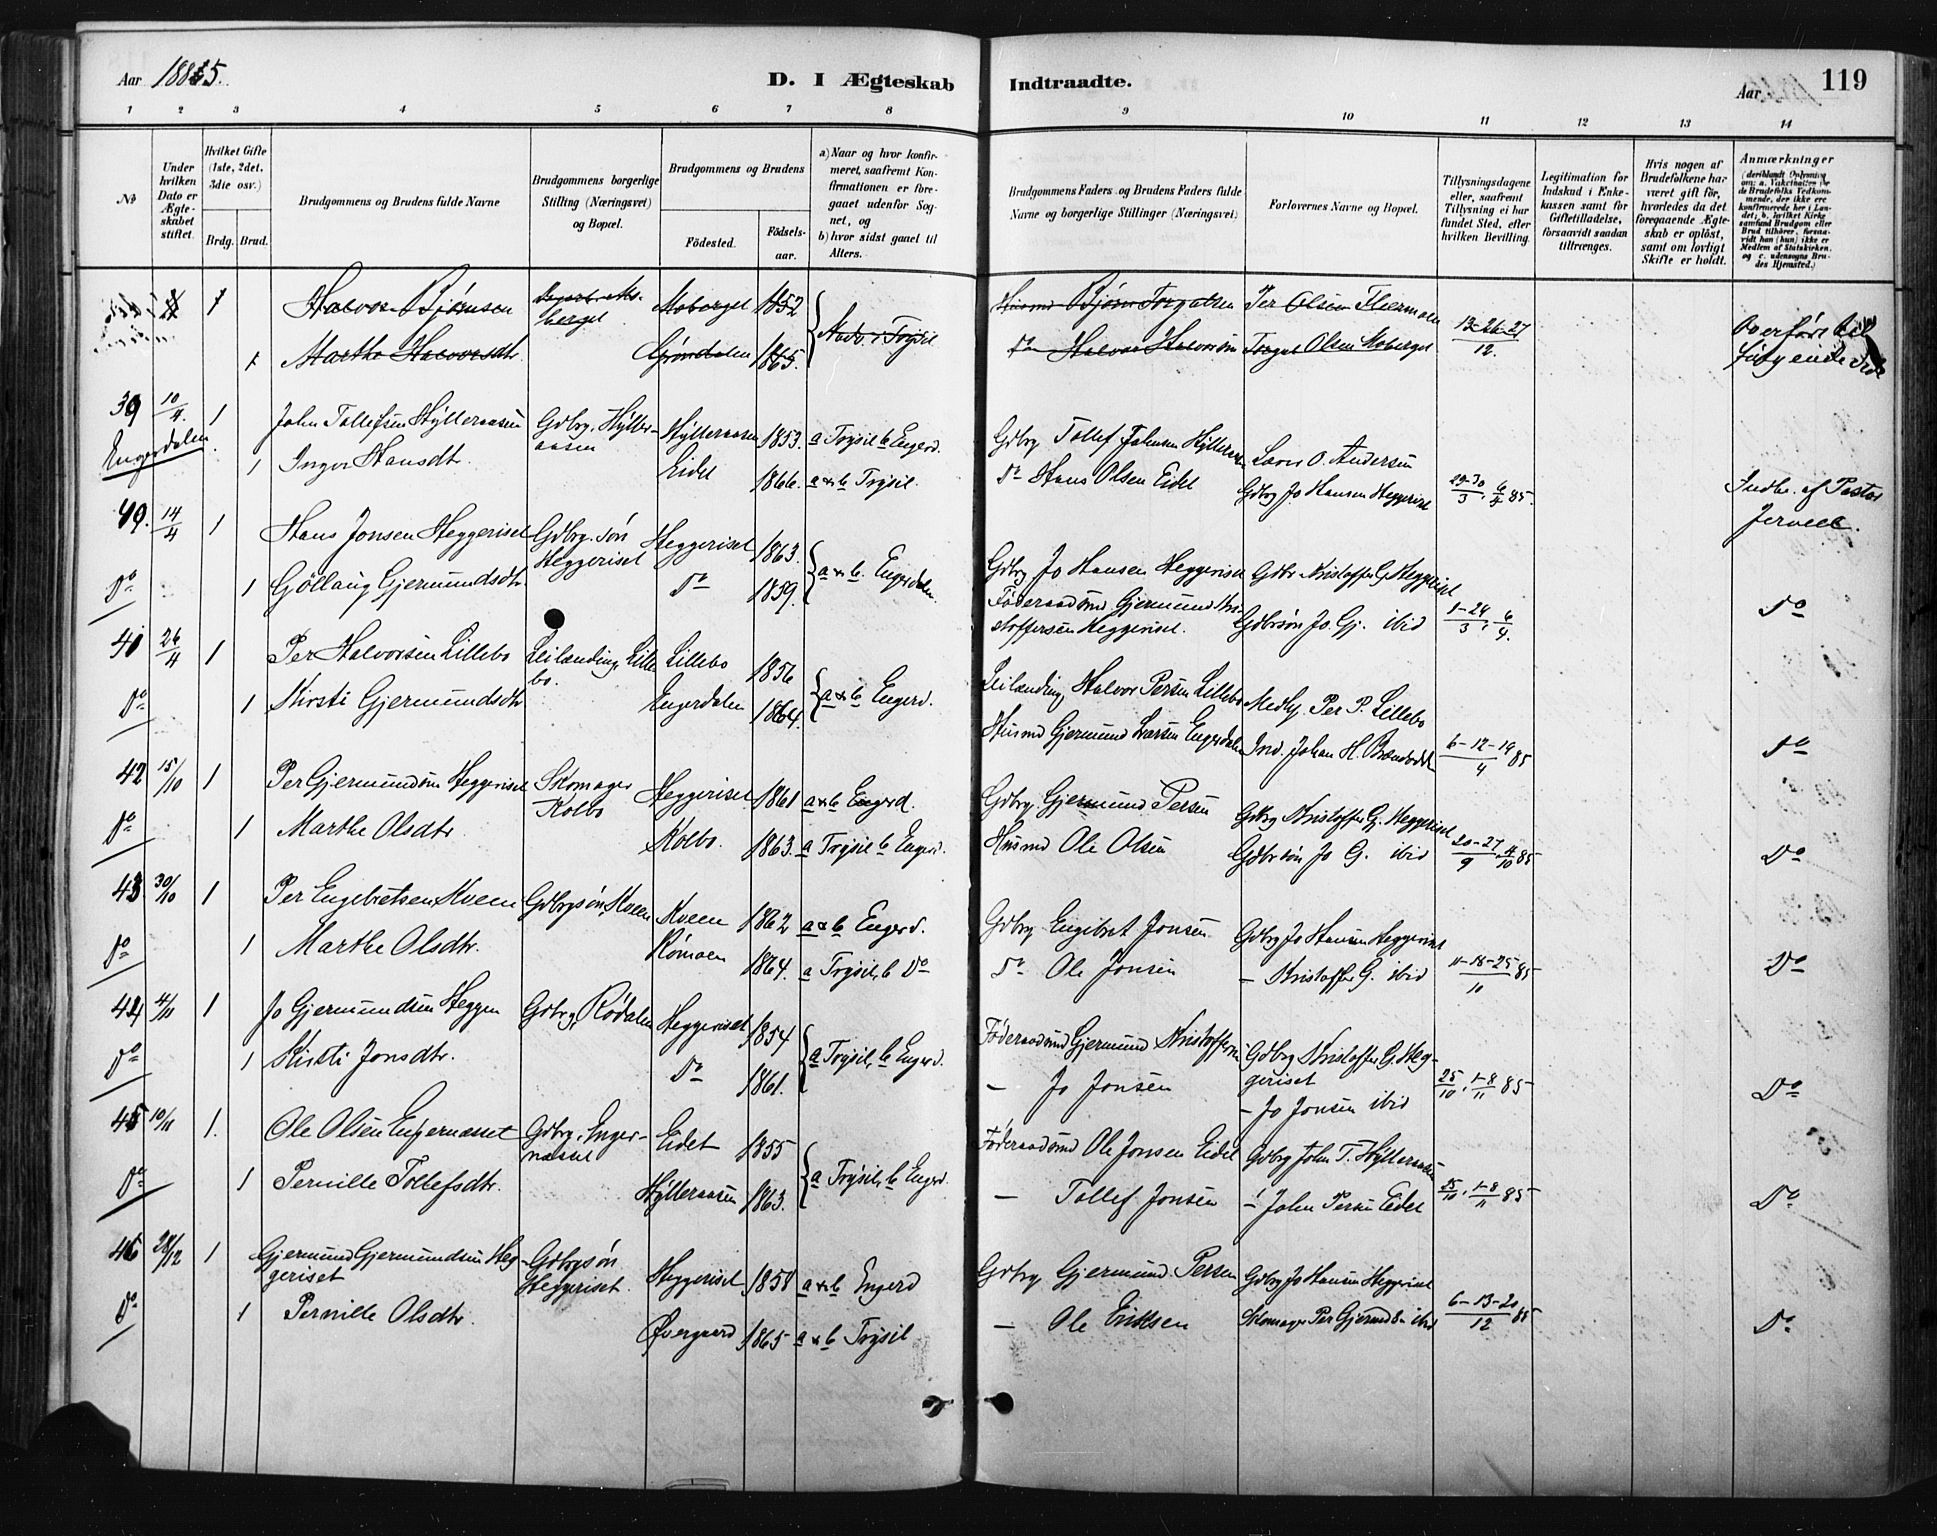 Aar 1885.
D. I Ægteskab
Indtraadte.
Aar
119
1 2 3 4 5 6 7 8 9 10 11 12 13 14
No
Under hvilken Dato er Ægteskabet stiftet.
Hvilket Gifte (1ste, 2det, 3die osv.)
Brdg. Brud.
Brudgommens og Brudens fulde Navne
Brudgommens borgerlige Stilling (Næringsvei) og Bopæl.
Brudgommens og Brudens
Fødested.
Fødselsaar.
a) Naar og hvor konfirmeret, saafremt Konfirmationen er foregaaet udenfor Sognet, og
b) hvor sidst gaaet til Alters.
Brudgommens Faders og Brudens Faders fulde Navne og borgerlige Stillinger (Næringsvei)
Forlovernes Navne og Bopæl.
Tillysningsdagene eller, saafremt Tillysning ei har fundet Sted, efter hvilken Bevilling.
Legitimation for Indskud i Enkekassen samt for Giftetilladelse, forsaavidt saadan tiltrænges.
Hvis nogen af Brudefolkene har været gift før, hvorledes da det foregaaende Ægteskab er opløst, samt om lovligt Skifte er holdt.
Anmærkninger
1 Halvor Bjørnsen Moberget 1852 Bjørn Torgalsen Per Olsen Flermoen 13-26-27/12. Overført til
1 Marthe Halvorsdtr. Grøndalen 1865. Do Halvor Halvorsen Torgal Olsen Moberget følgende Side
39 10/4. 1 John Tollefsen Hylleraasen Gdbrg. Hylleraasen Hylleraasen 1853. a Trysil b Engerd. Gdbrg Tollef Johnsen Hylleraasen Lars O. Andersen
Engerdalen. 1 Inger Hansdtr. Eidet 1866. a & b Trysil. Do Hans Olsen Eidet Gdbrg Jo Hansen Heggeriset 29-30/3, 6/4 85. Indbr. af Pastor Jervell.
40. 14/4 1 Hans Jonsen Heggeriset Gdbrg. søn Heggeriset Heggeriset 1863. a & b. Engerdalen. Gdbrg Jo Hansen Heggeriset Gdbr Kristoffer G. Heggeriset
Do 1 Gøllaug Gjermundsdtr. Do 1859. Føderaadsmd Gjermund Kristoffersen Heggeriset. Gdbrsøn Jo. Gj. ibid 1-24/3, 6/4. Do
41 26/4 1 Per Halvorsen Lillebo Leilænding, Lillebo. Lillebo 1856 a & b Engerd. Leilænding Halvor Persen Lillebo Medhj. Per P. Lillebo
Do 1 Kirsti Gjermundsdtr Engerdalen 1864. Husmd Gjermund Larsen Engerdalen Ind. Johan H. 6-12-19/4 85 Do
42 15/10 1 Per Gjermundsen Heggeriset Skomager Kolbo Heggeriset 1861 a & b Engerd. Gdbrg. Gjermund Persen Gdbrg Kristoffer Gj. Heggeriset
Do 1 Marthe Olsdtr. Kolbo. 1863. a Trysil b Engerd. Husmd Ole Olsen Gdbrsøn Jo G. ibid 20-27/9, 4/10 85 Do
43. 30/10 1 Per Engebretsen Kveen Gdbrgsøn, Kveen Kveen 1862 a & b Engerd. Gdbrg. Engebret Jonsen Gdbrg Jo Hansen Heggeriset
Do 1 Marthe Olsdtr. Rømoen 1864. a Trysil, b Do Do Ole Jonsen - Kristoffer G. ibid 11-18-25/10 85 Do
44 4/11 1 Jo Gjermundsen Heggen Gdbrg, Rødalen Heggeriset 1854 a Trysil, b Engerd. Føderaadsmd Gjermund Kristoffersen Gdbrg Kristoffer G. Heggeriset
Do 1 Kirsti Jonsdtr. Do 1861. - Jo Jonsen - Jo Jonsen ibid 25/10, 1-8/11 85 Do
45 10/11 1. Ole Olsen Engernæsset Gdbrg. Engernæsset Eidet 1855 a Trysil, b Engerd. Føderaadsmd Ole Jonsen Eidet Gdbrg John T. Hylleraasen
Do 1 Pernille Tollefsdtr. Hylleraasen 1863. - Tollef Jonsen - John Persen Eidet 25/10, 1-8/11 85 Do
46 28/12 1 Gjermund Gjermundsen Heggeriset Gdbrgsøn Heggeriset. Heggeriset 1858 a & b Engerd Gdbrg. Gjermund Persen Gdbrg Jo Hansen Heggeriset
Do 1 Pernille Olsdtr. Øvergaard 1865 a & b Trysil - Ole Eriksen Skomager Per Gjermds. ibid 6-13-20/12 85 Do